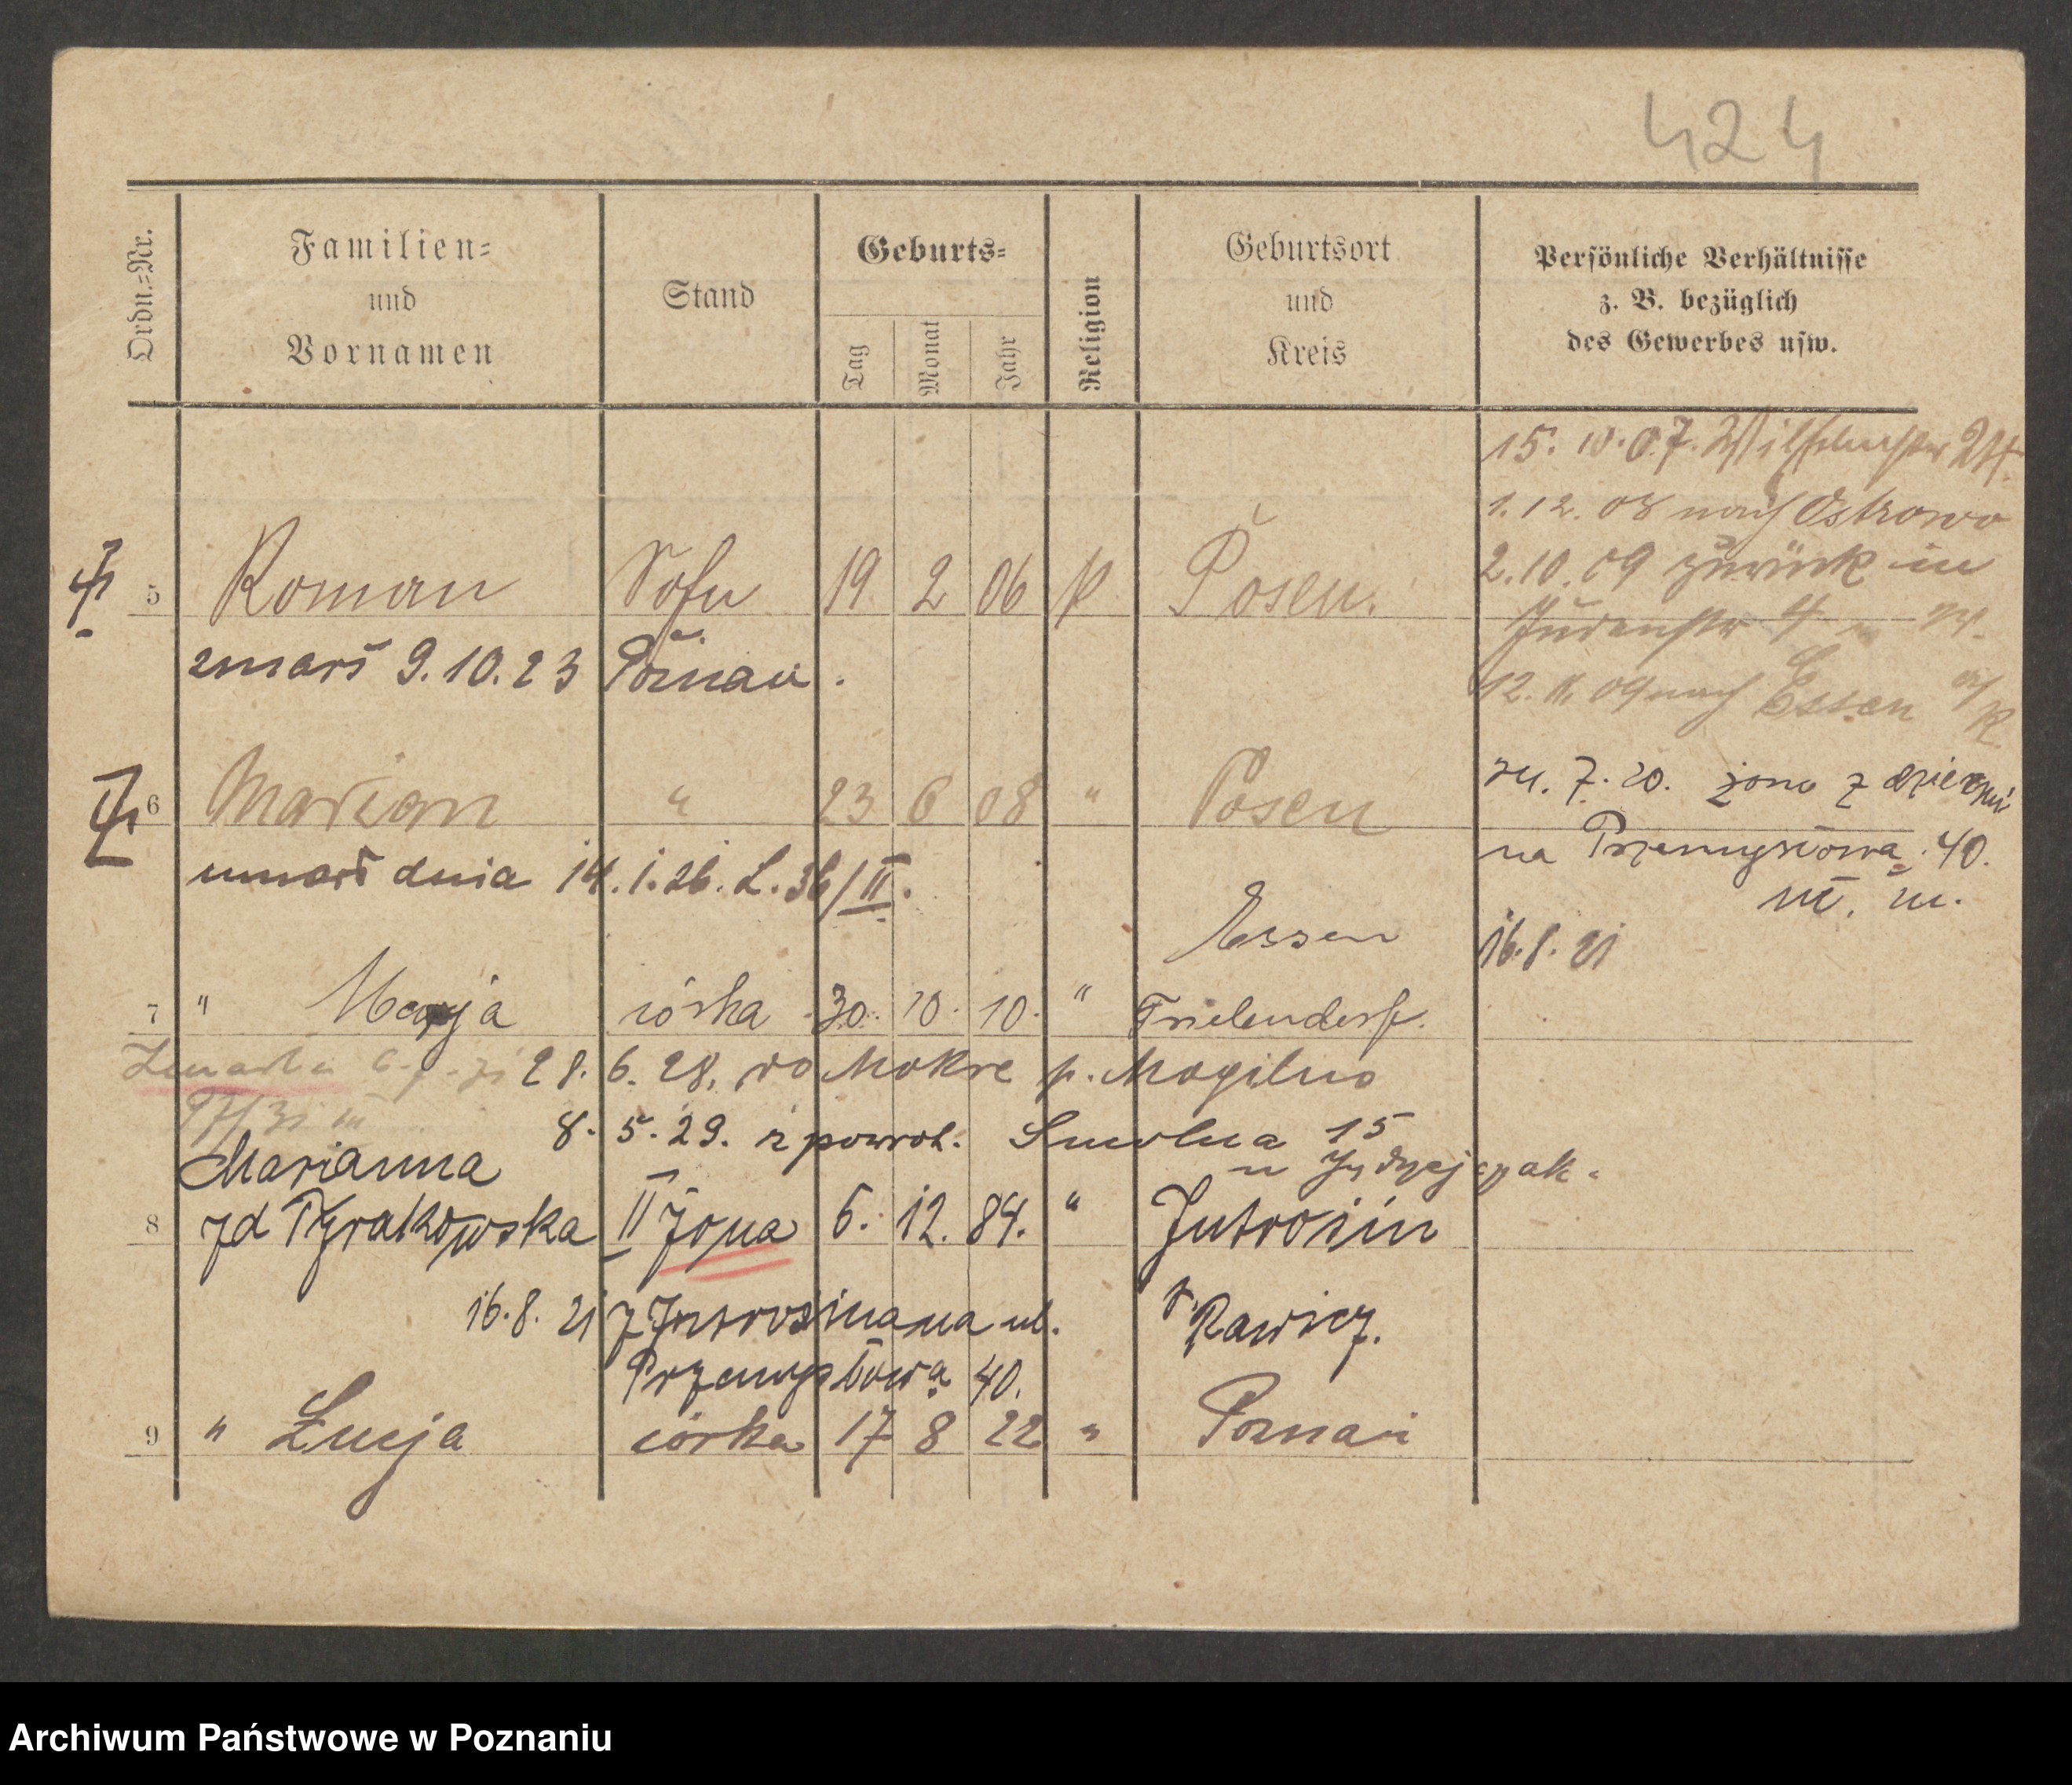 424
Ordn.-Nr.
Familien-
und
Vornamen
Stand
Geburts-
Tag
Monat
Jahr
Religion
Geburtsort
und
Kreis
Persönliche Verhältnisse
z. B. bezüglich
des Gewerbes usw.
15. 10. 07.
1. 12. 08 nach Ostrowo
2. 10. 09 zurück in
Judenstr 4
12. 11. 09 nach Essen
5 Roman Sohn 19 2 06 k Posen.
zmarł 9.10.23 Poznań.
6 Marian " 23 6 08 " Posen
umarł dnia 14.1.26. L. 36/II.
7. 20. żona z
na Przemysłowa 40.
16.8.21
Essen
7 " Marja córka 30. 10. 10. " Frielendorf.
Zmarła
28. 6. 28. do Mokre p. Mogilno
8. 5. 29. z powrot. Smolna 15
Marianna
8 zd Tyrakowska II żona 6. 12. 84. " Jutrosin
16.8.21 z Jutrosina na ul. Rawicz.
Przemysłową 40.
9 " Łucja córka 17 8 22 " Poznań
Archiwum Państwowe w Poznaniu